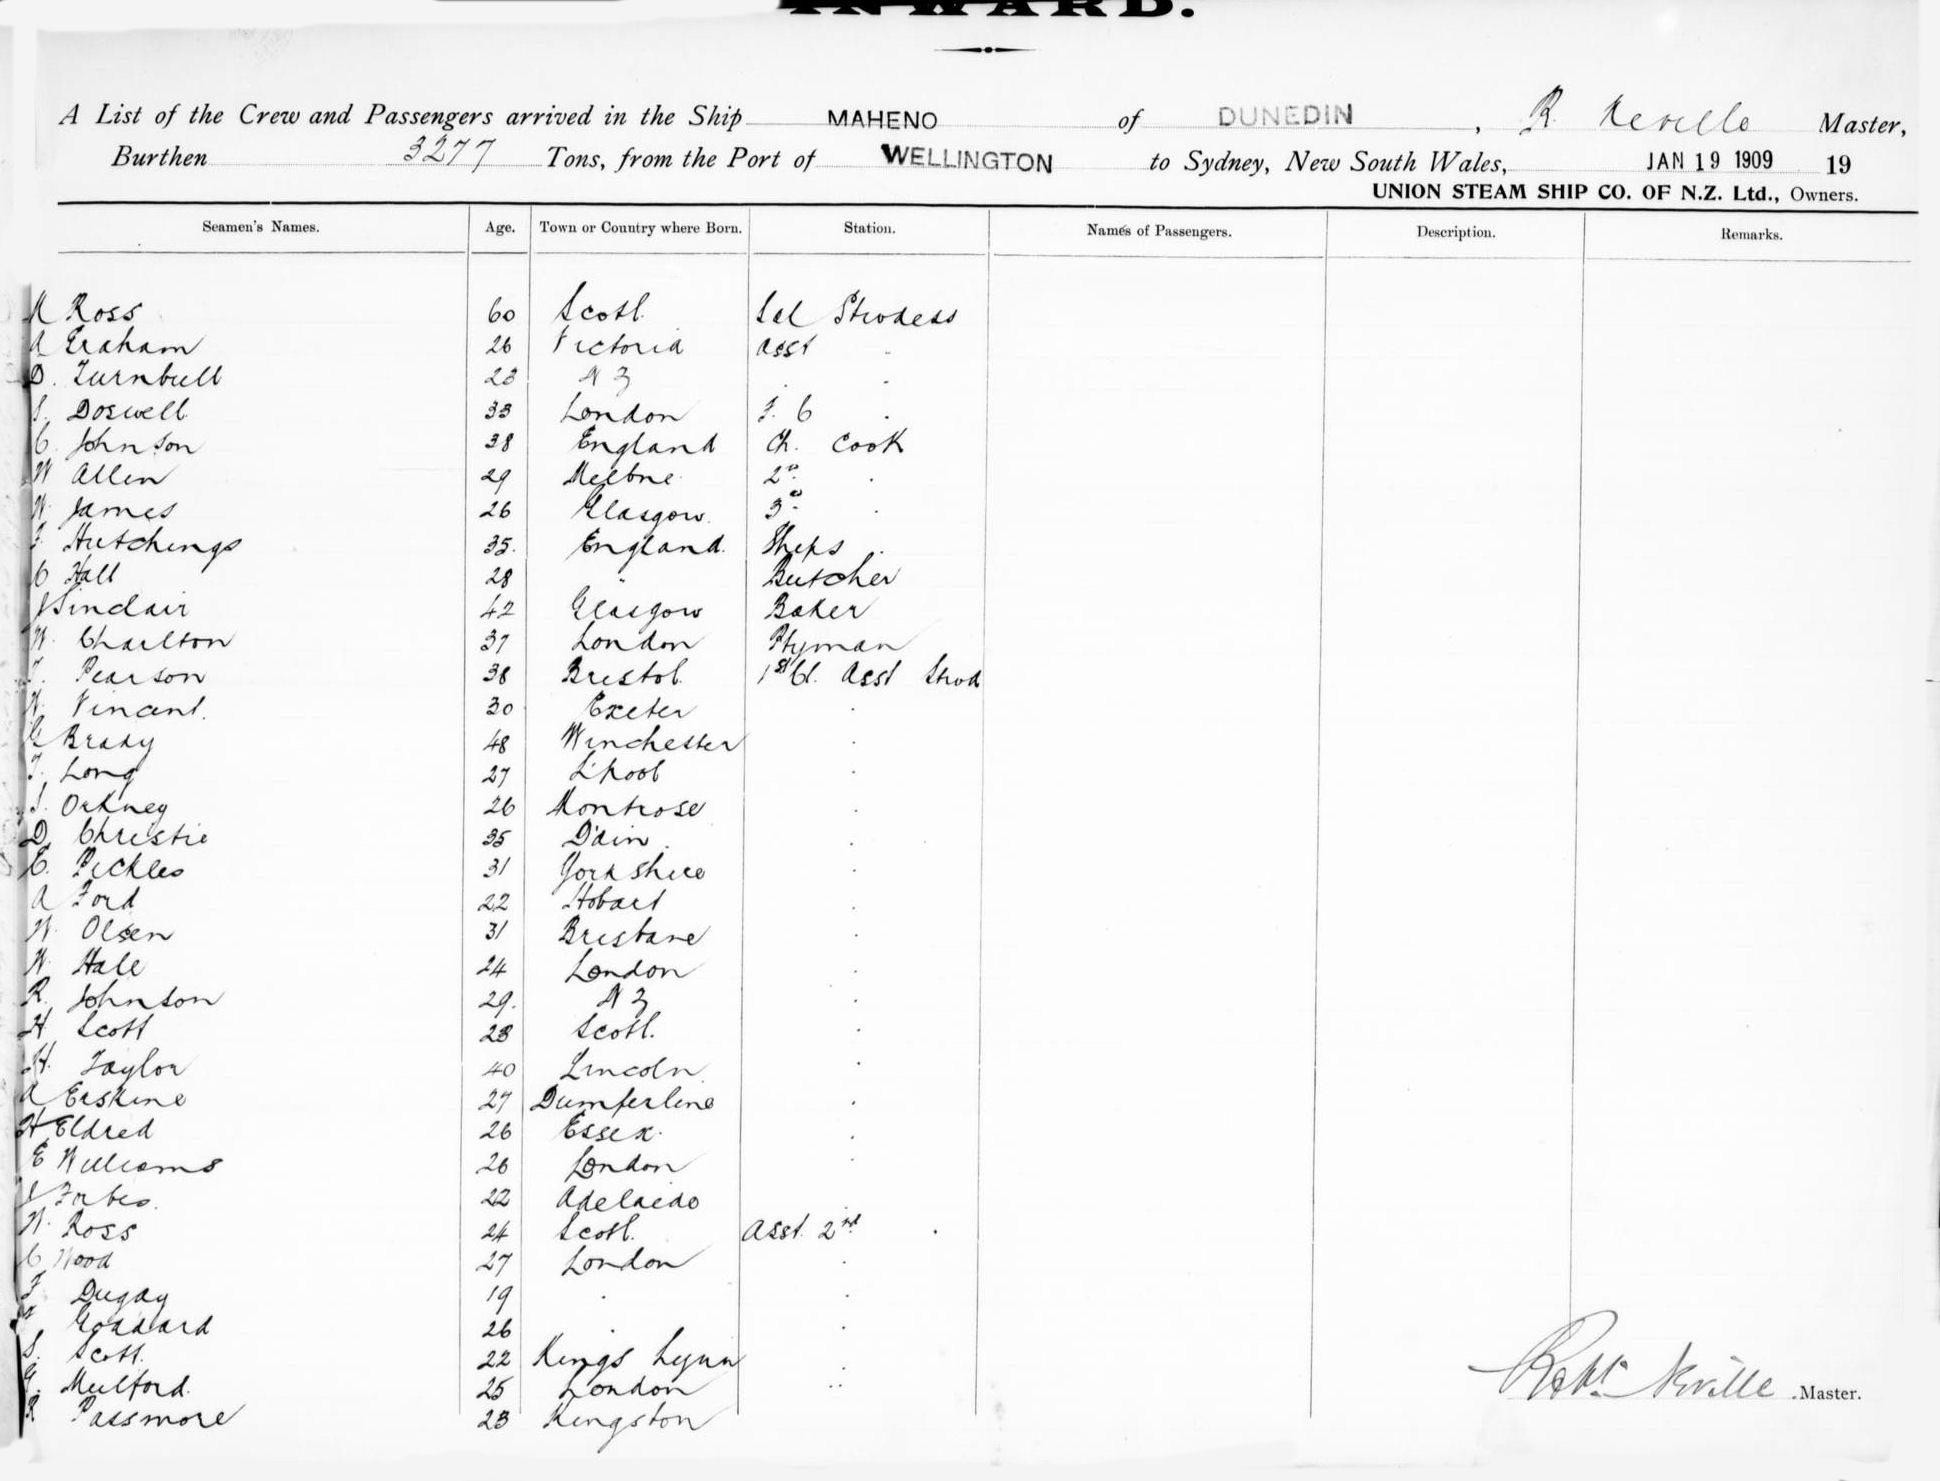 INWARD.
A List of the Crew and Passengers arrived in the Ship MAHENO of DUNEDIN, R. Neville Master,
Burthen 3277 Tons, from the Port of WELLINGTON to Sydney, New South Wales, JAN 19 1909 19
UNION STEAM SHIP CO. OF N.Z. Ltd., Owners.
Seamen's Names. Age. Town or Country where Born. Station. Names of Passengers. Description. Remarks.
M Ross 60 Scotl. Sal Stwdess
A Graham 26 Victoria Asst
D. Turnbull 23 N Z
S. Doswell 33 London F. C
C. Johnson 38 England Ch. Cook
W Allen 29 Melbne 2d
W. James 26 Glasgow. 3d
F Hutchings 35. England. Ships
C Hall 28 " Butcher
J Sinclair 42 Glasgow Baker
W. Charlton 37 London Ptyman
T. Pearson 38 Bristol. 1st Cl. Asst Stwd
W. Vincent. 30 Exeter
G Brady 48 Winchester
T. Long 27 L'pool
S. Orkney 26 Montrose
D. Christie 35 D'din.
E. Pickles 31 Yorkshire
A Ford 22 Hobart
W. Olsen 31 Brisbane
W. Hale 24 London
R. Johnson 29. N Z
H Scott 23 Scotl.
H. Taylor 40 Lincoln.
A Erskine 27 Dumferline
H Eldred 26 Essex.
E Williams 26 London
J Forbes. 22 Adelaide
W. Ross 24 Scotl. Asst. 2nd
C Wood 27 London
F. Dugay 19
F Goddard 26
S. Scott. 22 Kings Lynn
G. Mulford. 25 London
R Passmore 23 Kingston
Robt. Neville Master.